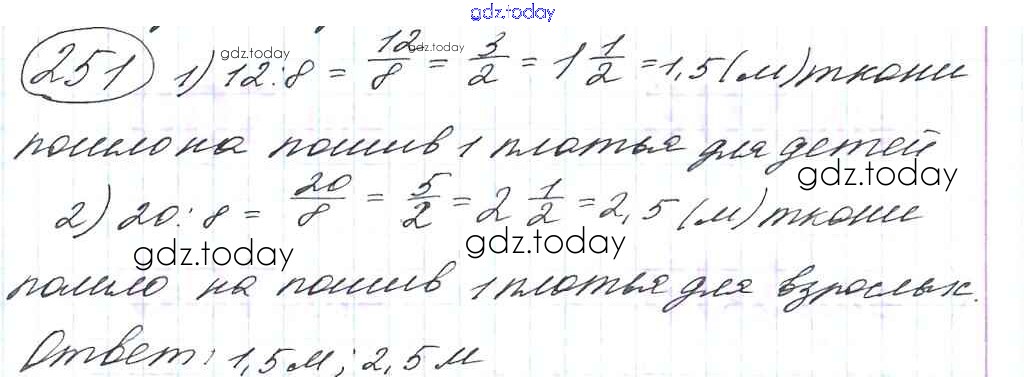 gdz.today
251 1) 12:8 = 12/8 = 3/2 = 1 1/2 = 1,5 (м) ткани
gdz.today
gdz.today
пошло на пошив 1 платья для детей
gdz.today
2) 20:8 = 20/8 = 5/2 = 2 1/2 = 2,5 (м) ткани
gdz.today
gdz.today
пошло на пошив 1 платья для взрослых.
Ответ: 1,5 м; 2,5 м